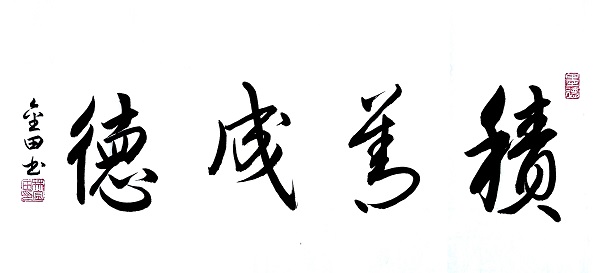 積善成德
金田书